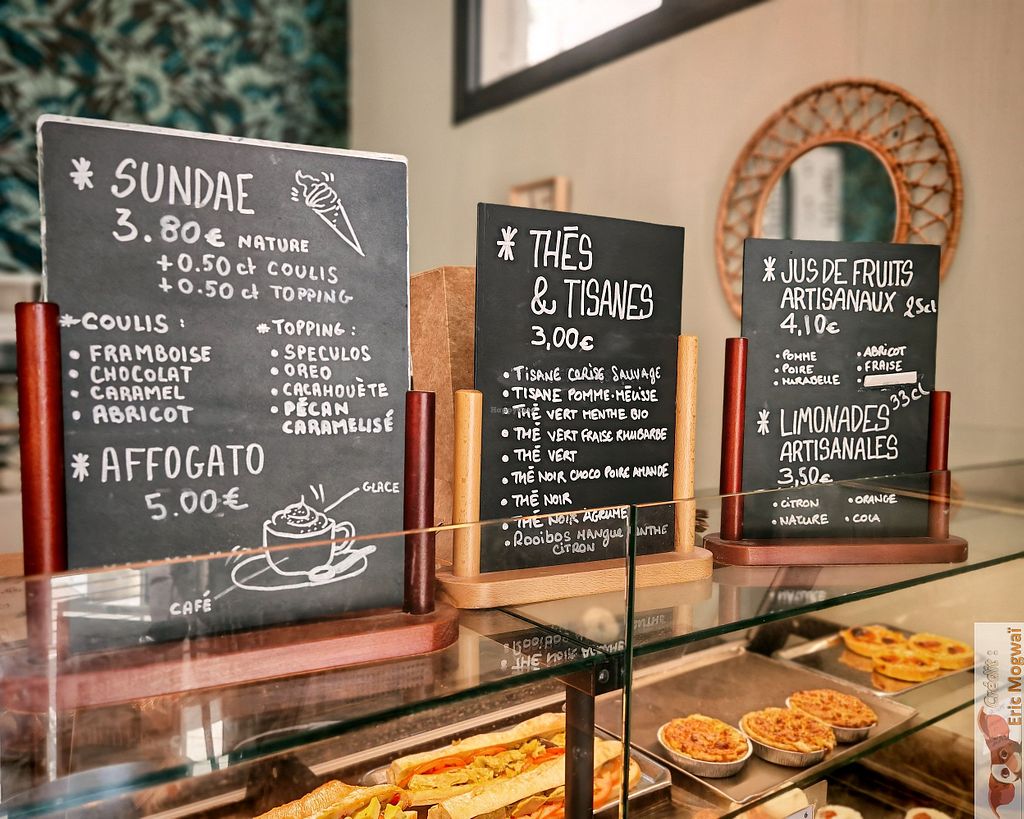 * SUNDAE
3.80€ NATURE
+0.50 ct COULIS
+0.50 ct TOPPING
*COULIS :
• FRAMBOISE
• CHOCOLAT
• CARAMEL
• ABRICOT
*TOPPING :
• SPECULOS
• OREO
• CACAHOUÈTE
• PÉCAN
CARAMELISÉ
* AFFOGATO
5.00€
GLACE
CAFÉ
* THÉS
& TISANES
3,00€
• TISANE CERISE SAUVAGE
• TISANE POMME-MÉLISSE
• THÉ VERT MENTHE BIO
• THÉ VERT FRAISE RHUBARBE
• THÉ VERT
• THÉ NOIR CHOCO POIRE AMANDE
• THÉ NOIR
• THÉ NOIR AGRUME
• ROOIBOS MANGUE MENTHE
CITRON
* JUS DE FRUITS
ARTISANAUX 25cl
4,10€
• POMME
• POIRE
• MIRABELLE
• ABRICOT
• FRAISE
* LIMONADES 33cl
ARTISANALES
3,50€
• CITRON
• NATURE
• ORANGE
• COLA
Crédit :
Eric Mogwaï